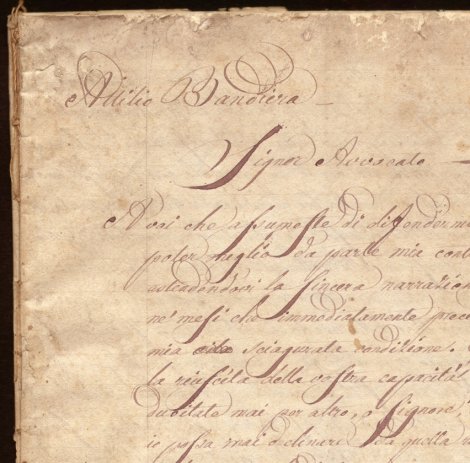 Attilio Bandiera
Signor Avvocato
A voi che assumeste di difendermi
poter meglio da parte mia cont
estendendovi la sincera narrazion
ne' mesi che immediatamente prece
mia sciagurata condizione.
la riuscita della vostra capacità
dubitate mai per altro, o Signore,
io possa mai declinare da quella